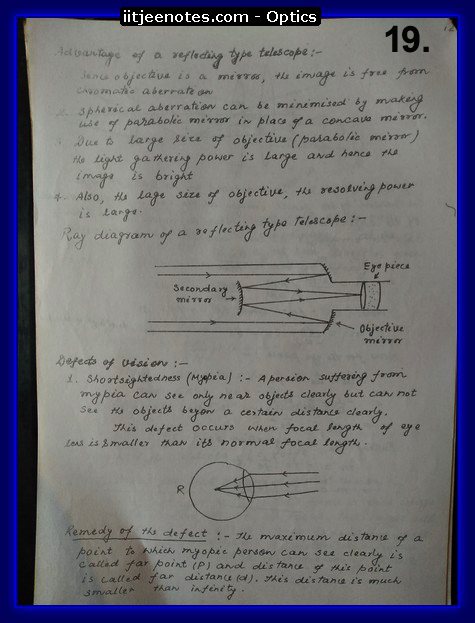 iitjeenotes.com - Optics
19.
Advantage of a reflecting type telescope:-
Sence objective is a mirror, the image is free from
chromates aberration
2. Spherical aberration can be minimised by making
use of parabolic mirror in place of a concave mirror.
Due to large size of objective (parabolic mirror)
the light gathering power is large and hence the
image is bright
4. Also, the lage size of objective, the resolving power
is large.
Ray diagram of a reflecting type telescope:-
Eye piece
Secondary
mirror
Objective
mirror
Defects of vision:-
1. Shortsightedness (Myopia) :- A persion suffering from
mypia can see only near objects clearly but can not
see the objects beyon a certain distance clearly.
This defect occurs when focal length of eye
lens is smaller than its normal focal length.
R
Remedy of the defect :- the maximum distance of a
point to which myopic person can see clearly is
called far point (F) and distance of this point
is called far distance (d). This distance is much
smaller than infinity.